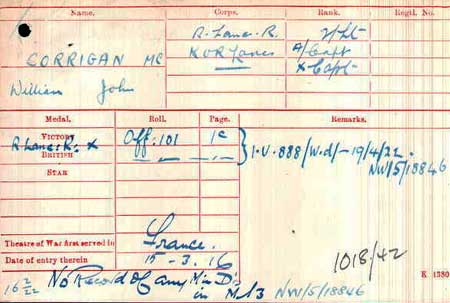 Name. Corps. Rank. Regtl. No.
R. Lanc. R. 2/Lt
CORRIGAN MC K O R Lancs A/Capt
William John x Capt
Medal. Roll. Page. Remarks.
VICTORY Off: 101 1c
R Lanc: R. x
BRITISH — " — — " — I.V. 888/W.d/- 19/4/22.
STAR NW/5/18846
Theatre of War first served in France.
Date of entry therein 15-3.16
1018/42
K 1380
16 2/22 No Record of any in D's
in M/3 NW/5/18846